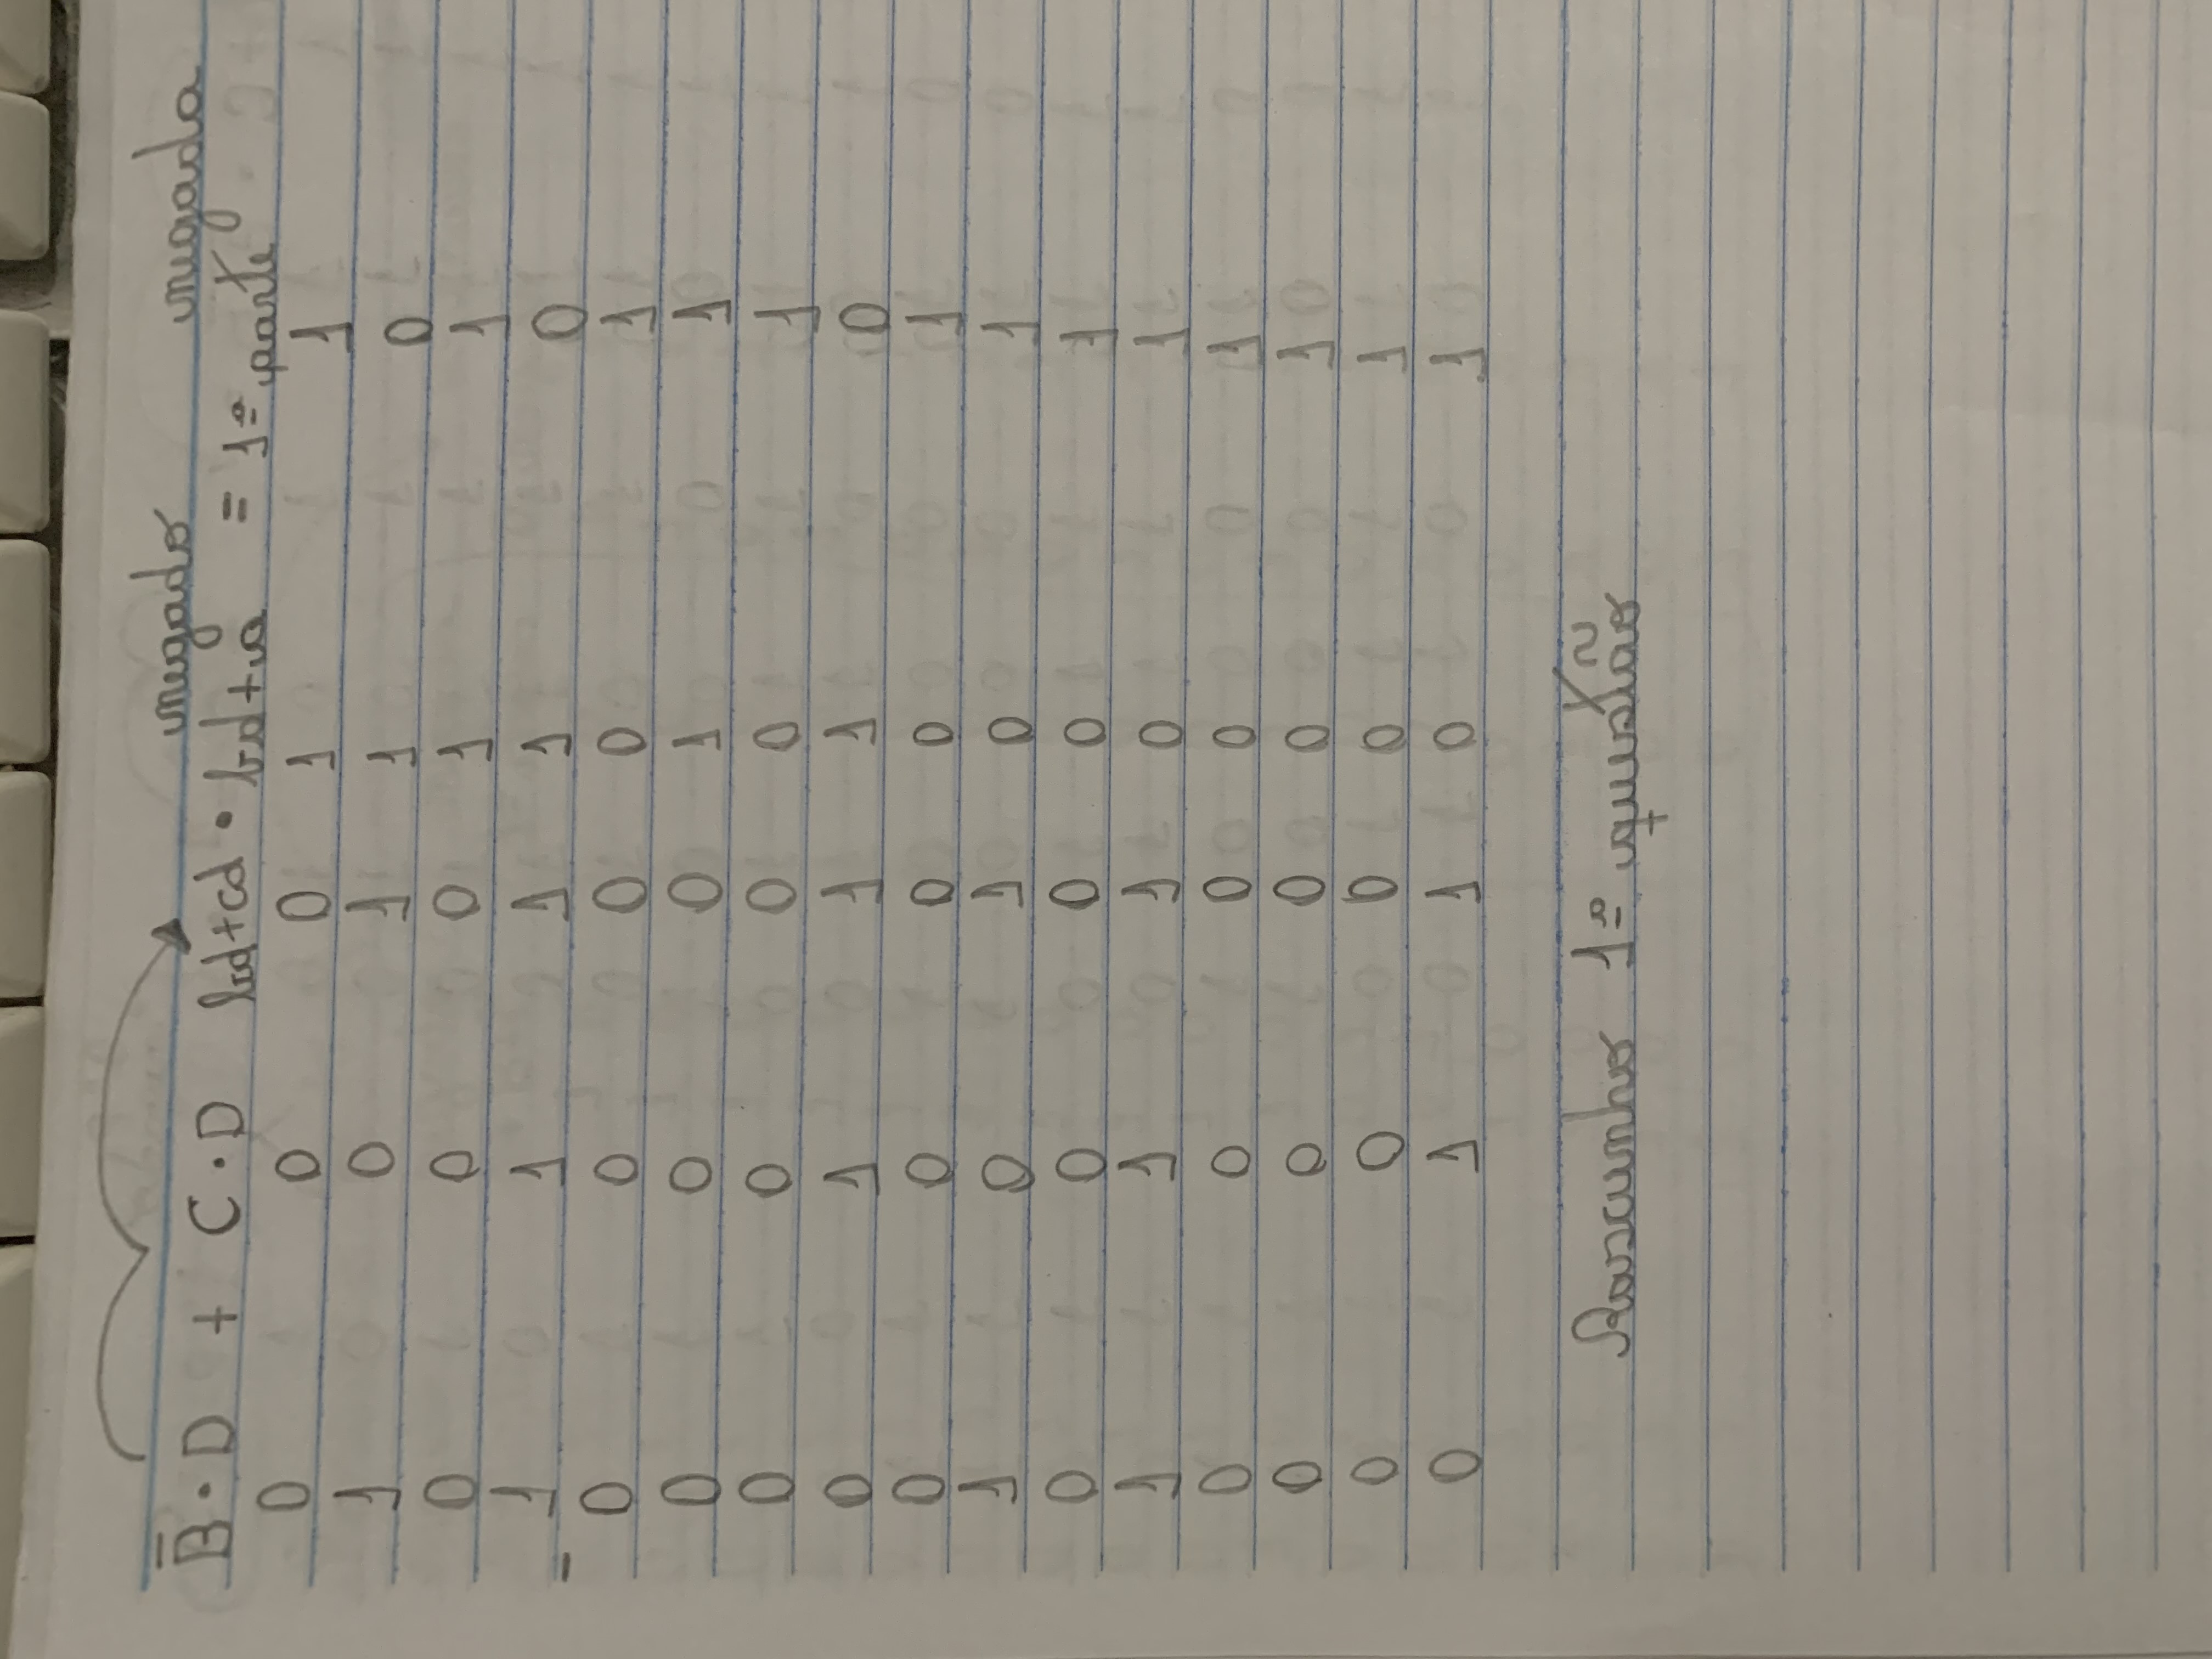 negado negada
B̅·D + C·D bd+cd · bd+a = 1ª parte
0 0 0 1 1
1 0 1 1 0
0 0 0 1 1
1 1 1 1 0
=
0 0 0 0 1
0 0 0 1 1
0 0 0 0 1
0 1 1 1 0
0 0 0 0 1
1 0 1 0 1
0 0 0 0 1
1 1 1 0 1
0 0 0 0 1
0 0 0 0 1
0 0 0 0 1
0 1 1 0 1
Rascunho 1ª questão